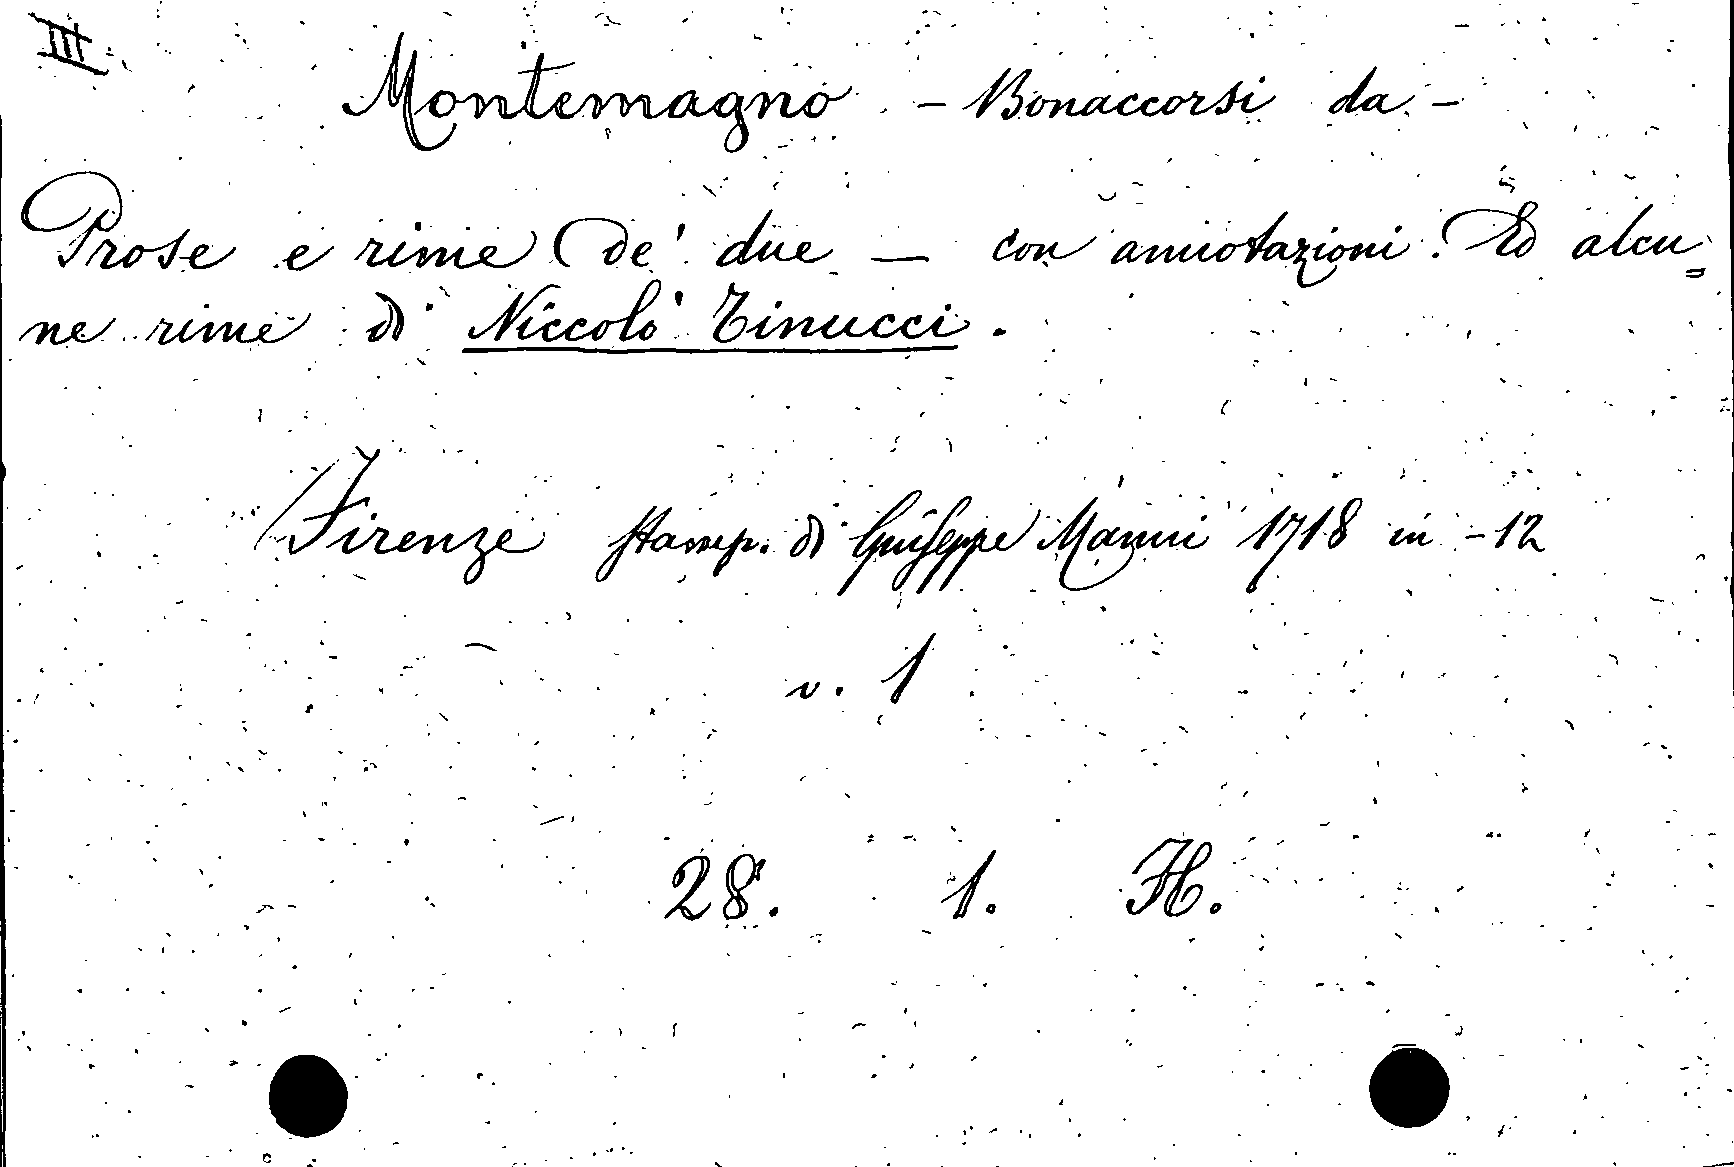 III
Montemagno - Bonaccorsi da -
Prose e rime de' due — con annotazioni. Ed alcu=
ne rime di Niccolò Tinucci.
Firenze stamp. di Giuseppe Manni 1718 in -12
v. 1
28. 1. H.